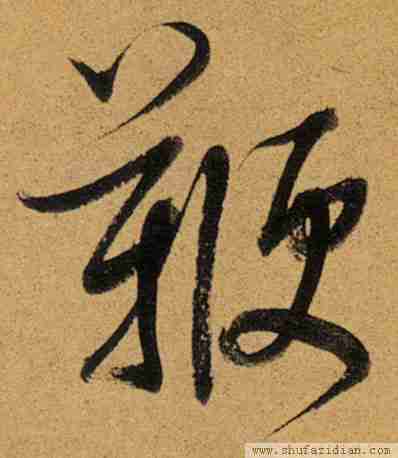 鞭
www.shufazidian.com